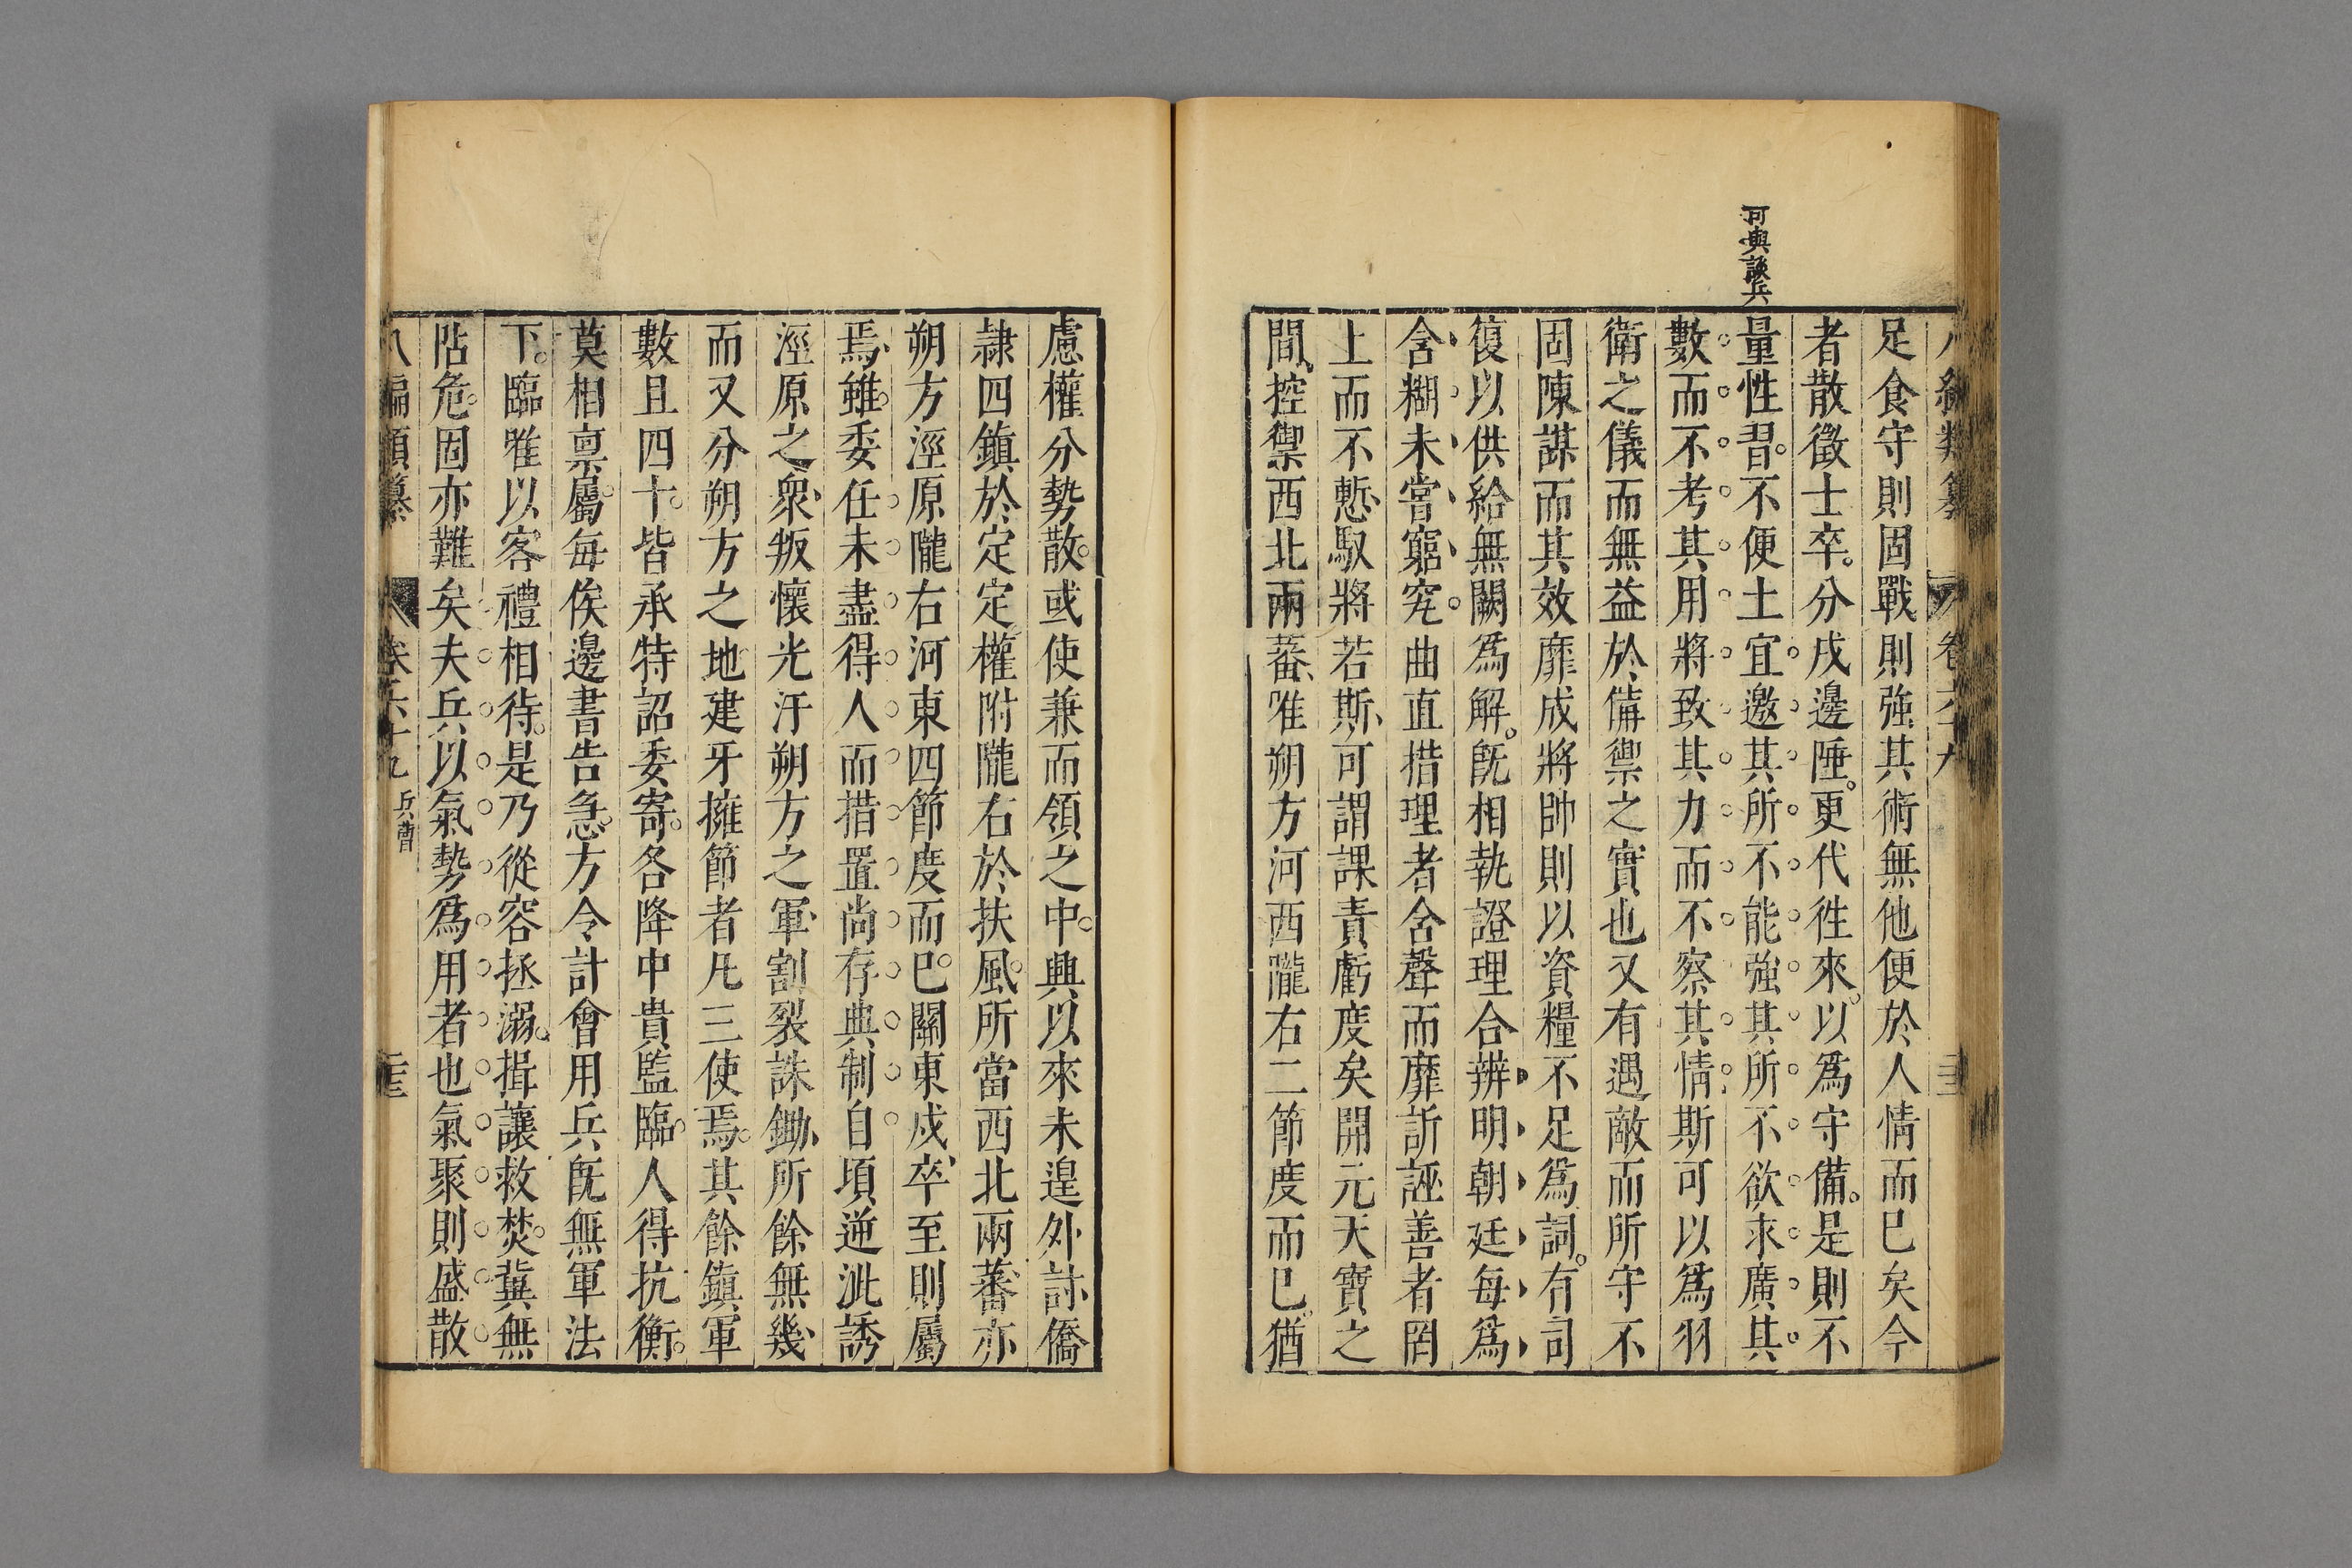 可與談兵
足食守則固戰則強其術無他便於人情而巳矣今
者散徵士卒。分戍邊陲。更代徃來。以爲守備。是則不
量性習。不便土宜邀其所不能強其所不欲求廣其
數而不考其用將致其力而不察其情斯可以爲羽
衛之儀而無益於備禦之實也又有遇敵而所守不
固陳謀而其效靡成將帥則以資糧不足爲詞。有司
復以供給無闕爲解。旣相執證理合辨明朝廷每爲
含糊未嘗窮究曲直措理者含聲而靡訢誣善者罔
上而不慙、馭將若斯、可謂課責虧度矣開元天寶之
間、控禦西北兩蕃、唯朔方河西隴右二節度而巳。猶
慮權分勢散。或使兼而領之中。興以來未遑外討僑
隷四鎮於定定權附隴右於扶風。所當西北兩蕃、亦
朔方涇原隴右河東四節度而巳。關東戍、卒至則屬
焉、雖委任未盡得人而措置尚存典制自頃逆泚誘
涇原之衆、叛懷光汙朔方之軍、割裂誅鋤、所餘無幾、
而又分朔方之地建牙擁節者凡三使焉。其餘鎮軍
數且四十。皆承特詔委寄。各降中貴監臨。人得抗衡。
莫相禀屬。每俟邊書告急。方令計會用兵旣無軍法
下。臨唯以客禮相待。是乃從容拯溺。揖讓救焚。冀無
阽危。固亦難矣夫兵以氣勢爲用者也氣聚則盛散
八編類纂 卷六十九 兵曹 二十三